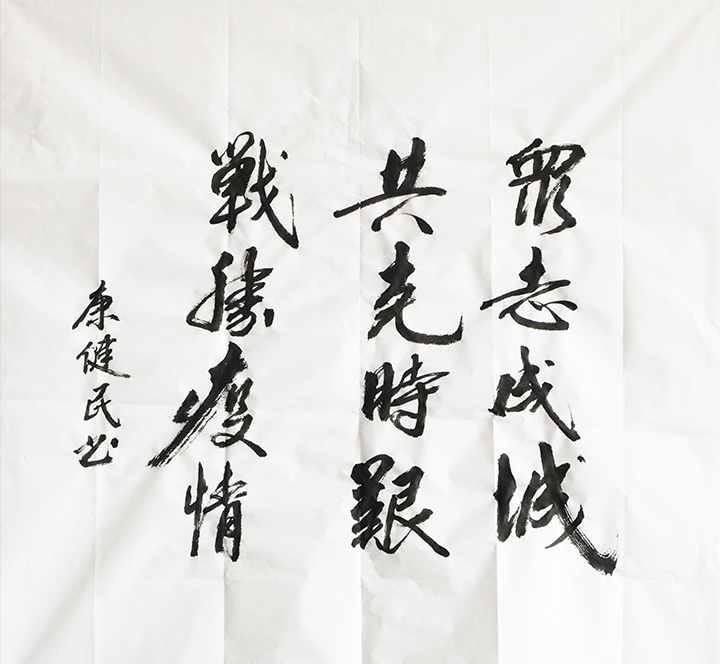 眾志成城
共克時艱
戰勝疫情
康健民书